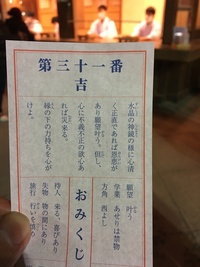 第三十一番
吉
水晶の神鏡の様に心清
く正直であれば恩恵が
あり願望叶う。但し、
心に不義不正の欲心あ
れば災来る。
縁の下の力持ちを心が
けよ。
おみくじ
願望 叶う。
学業 あせりは禁物
方角 西よし
待人 来る、喜びあり
失物 物の間にあり
旅行 行いを慎め